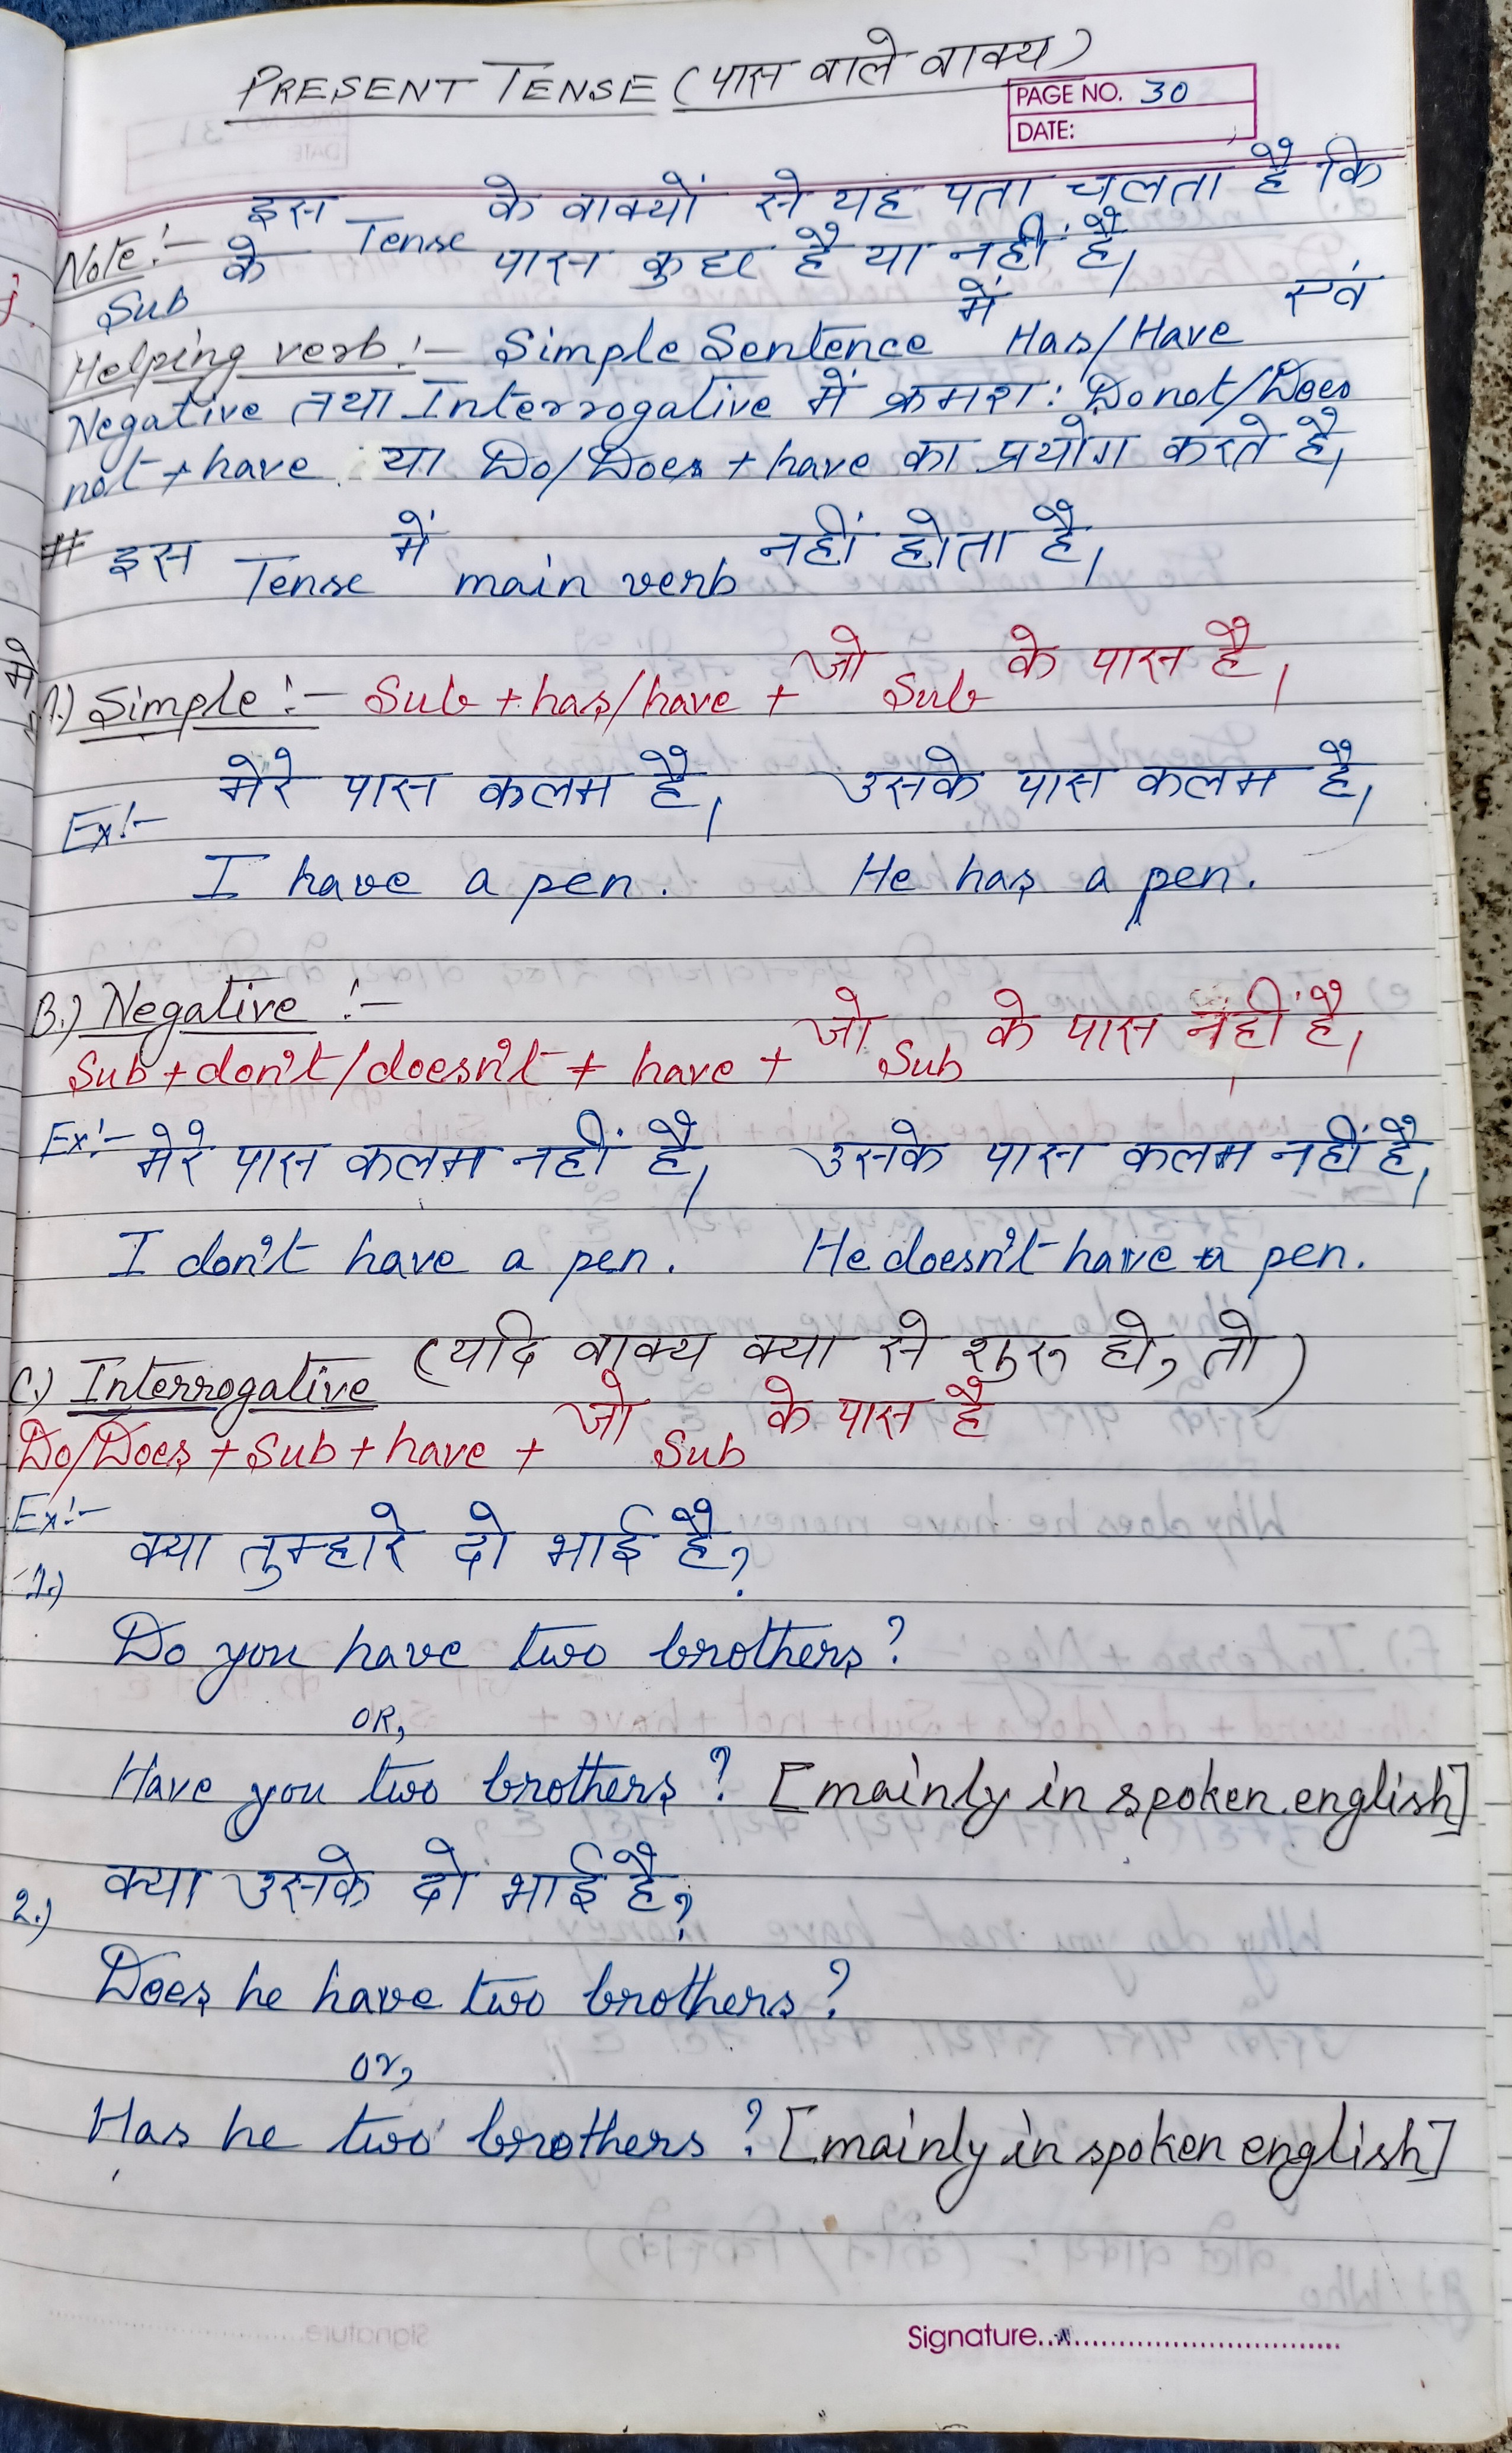 PRESENT TENSE (पास वाले वाक्य)
PAGE NO. 30
DATE:
Note:- इस Tense के वाक्यों से यह पता चलता है कि
Sub के पास कुछ है या नहीं है।
Helping verb:- Simple Sentence में Has/Have एवं
Negative तथा Interrogative में क्रमश: Do not/Does
not + have या Do/Does + have का प्रयोग करते है।
# इस Tense में main verb नहीं होता है।
A.) Simple:- Sub + has/have + जो Sub के पास है।
Ex:- मेरे पास कलम है। उसके पास कलम है।
I have a pen. He has a pen.
B.) Negative :-
Sub + don't/doesn't + have + जो Sub के पास नहीं है।
Ex:- मेरे पास कलम नहीं है। उसके पास कलम नहीं है।
I don't have a pen. He doesn't have a pen.
C.) Interrogative (यदि वाक्य क्या से शुरू हो, तो)
Do/Does + Sub + have + जो Sub के पास है
Ex:-
1.) क्या तुम्हारे दो भाई है?
Do you have two brothers?
OR,
Have you two brothers? [mainly in spoken english]
2.) क्या उसके दो भाई है?
Does he have two brothers?
or,
Has he two brothers? [mainly in spoken english]
Signature